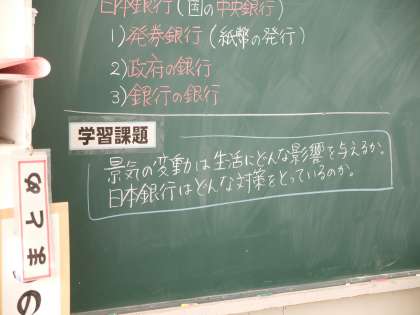 日本銀行(国の中央銀行)
1)発券銀行(紙幣の発行)
2)政府の銀行
3)銀行の銀行
学習課題
景気の変動は生活にどんな影響を与えるか。
日本銀行はどんな対策をとっているのか。
まとめ
の